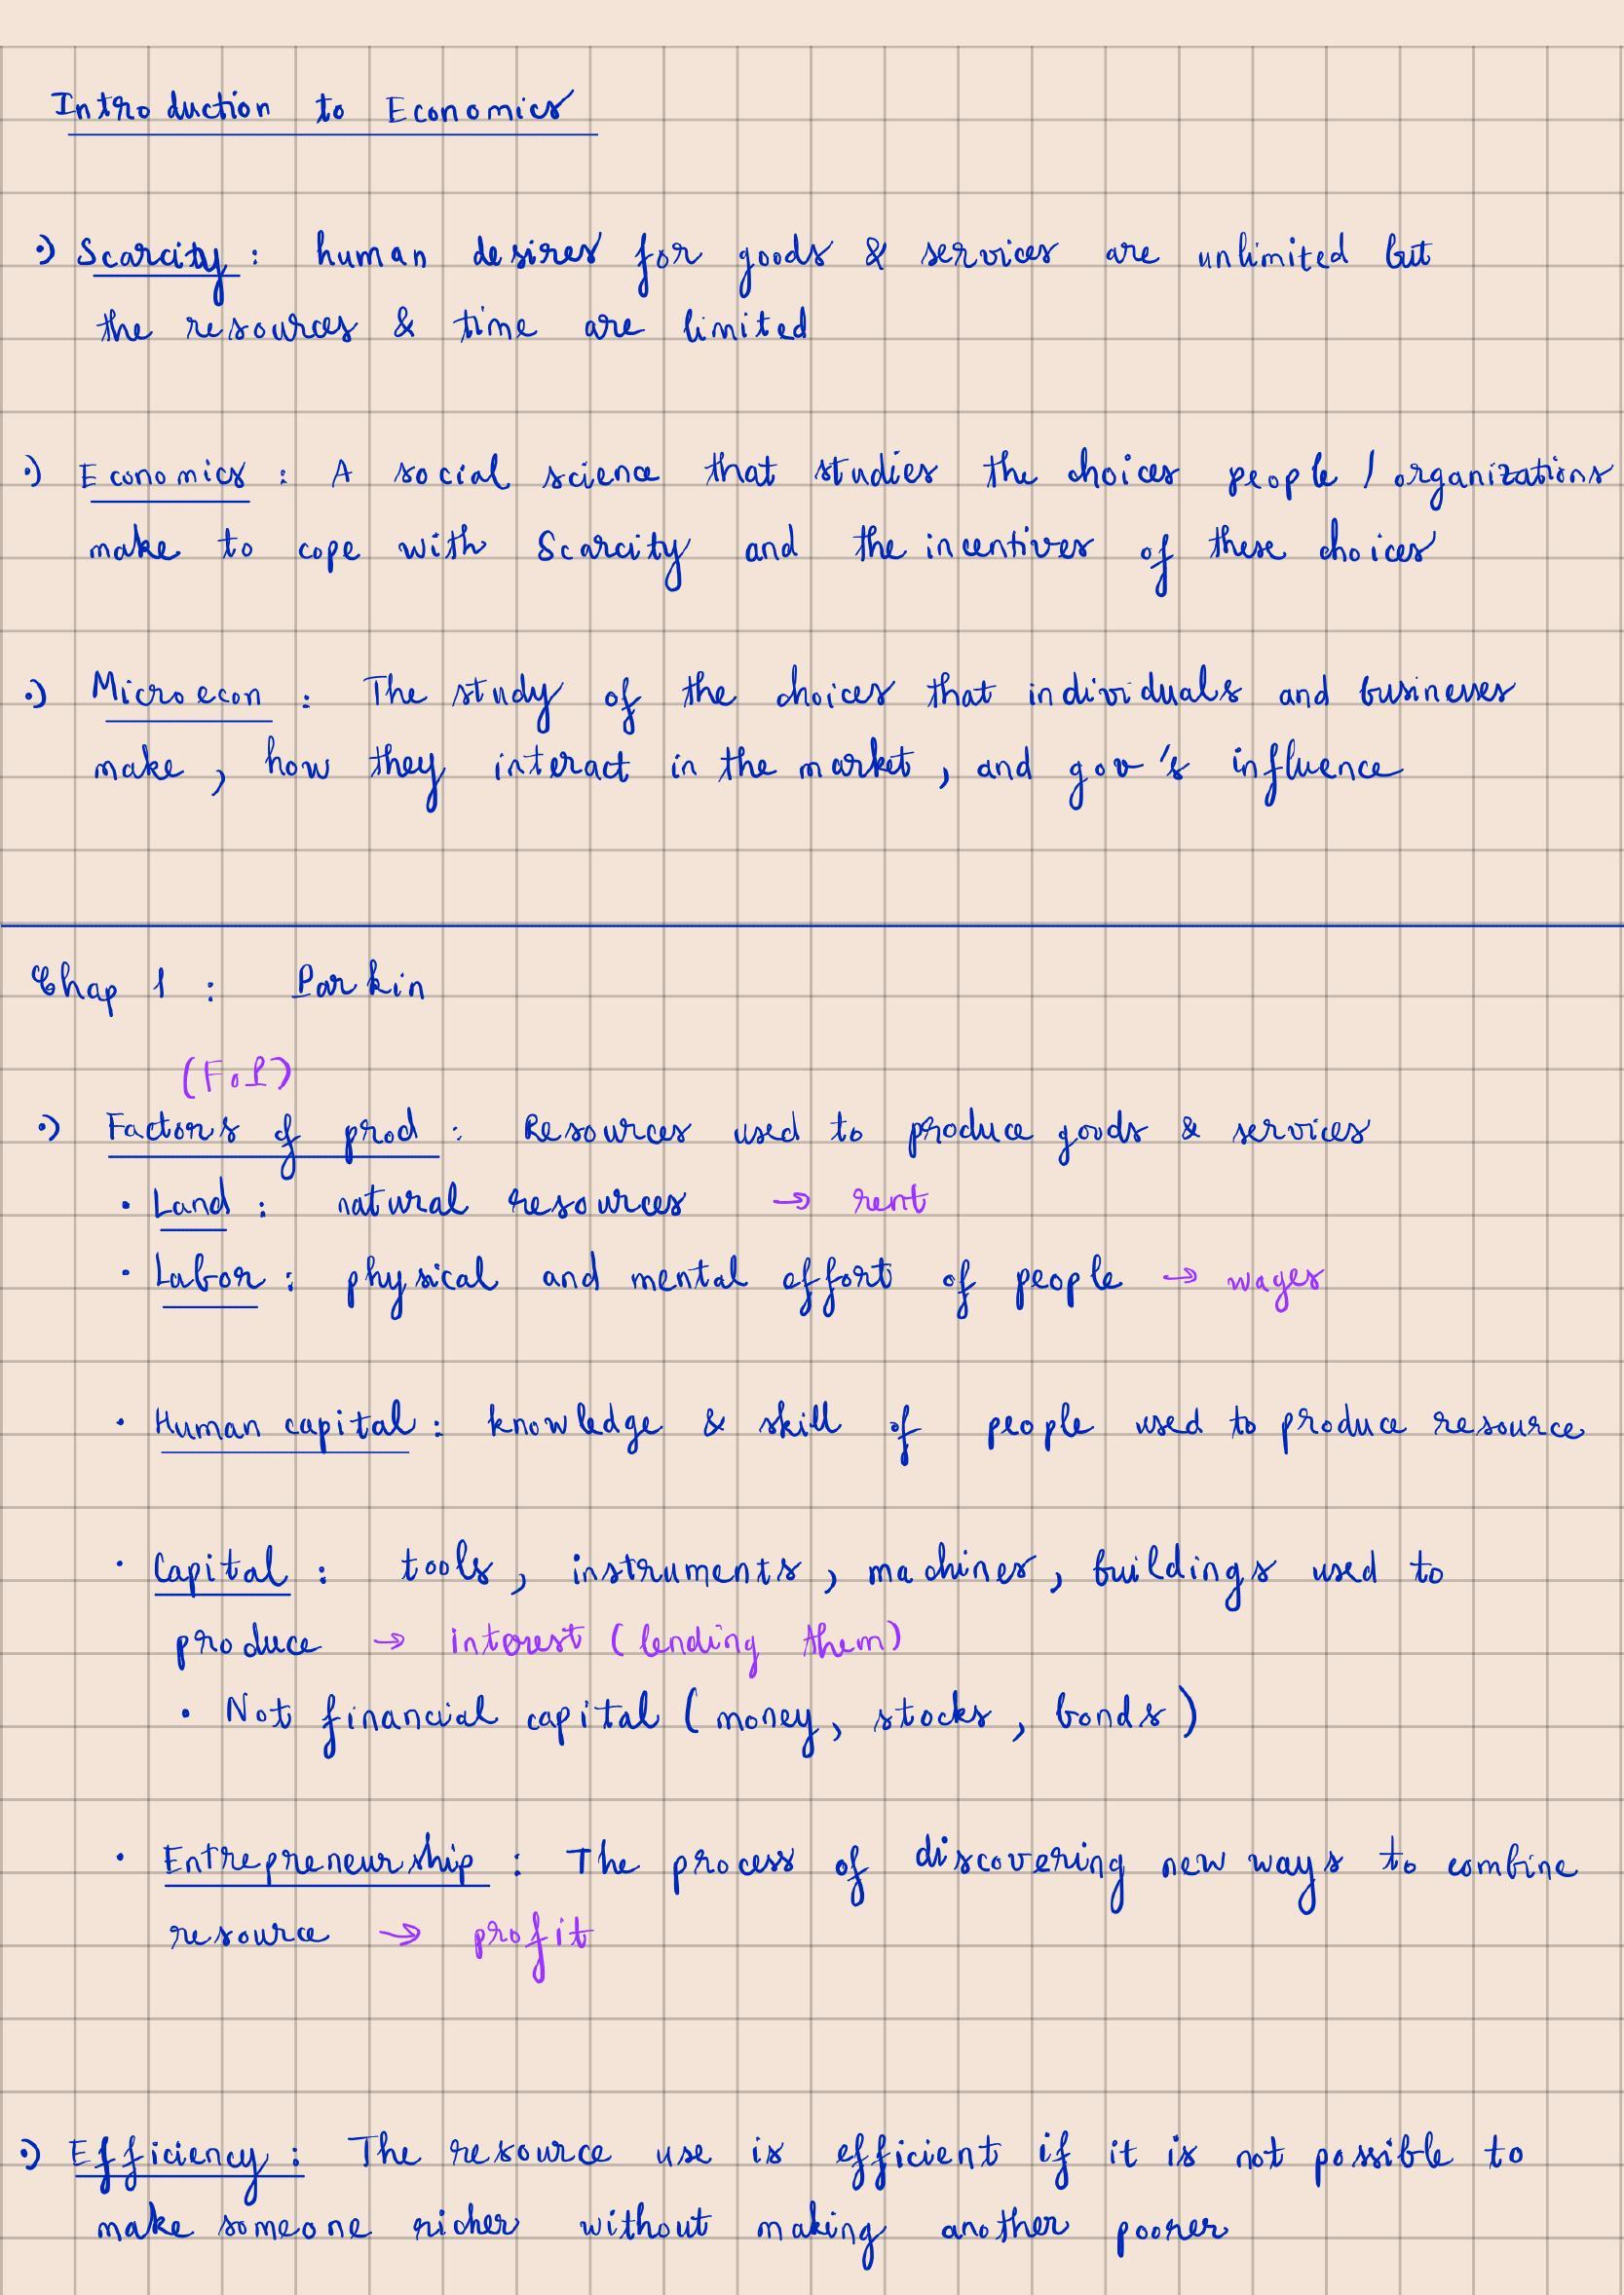 Introduction to Economics
•) Scarcity : human desires for goods & services are unlimited but
the resources & time are limited
•) Economics : A social science that studies the choices people / organizations
make to cope with Scarcity and the incentives of these choices
•) Microecon : The study of the choices that individuals and businesses
make , how they interact in the market , and gov's influence
Chap 1 : Parkin
(FoP)
•) Factors of prod : Resources used to produce goods & services
• Land : natural resources → rent
• Labor : physical and mental effort of people → wages
• Human capital : knowledge & skill of people used to produce resource
• Capital : tools , instruments , machines , buildings used to
produce → interest ( lending them )
• Not financial capital ( money , stocks , bonds )
• Entrepreneurship : The process of discovering new ways to combine
resource → profit
•) Efficiency : The resource use is efficient if it is not possible to
make someone richer without making another poorer